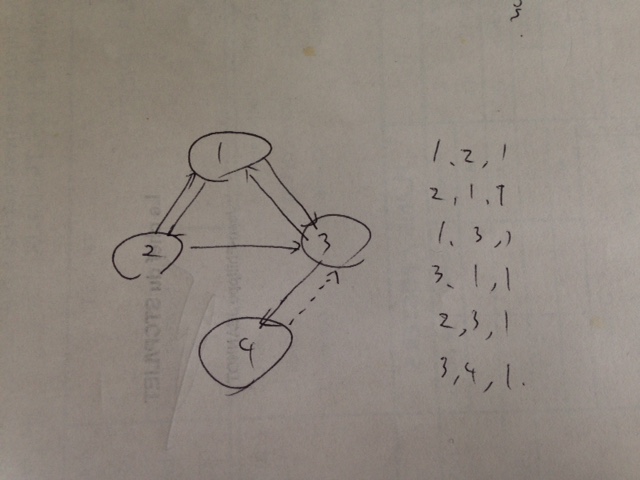 1
2
3
4
1, 2, 1
2, 1, 1
1, 3, 1
3, 1, 1
2, 3, 1
3, 4, 1.